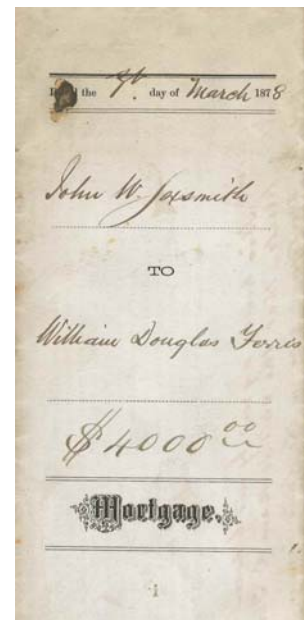 the 9th. day of March 1878
John W. Sexsmith
TO
William Douglas Ferris
$4000.00
Mortgage.